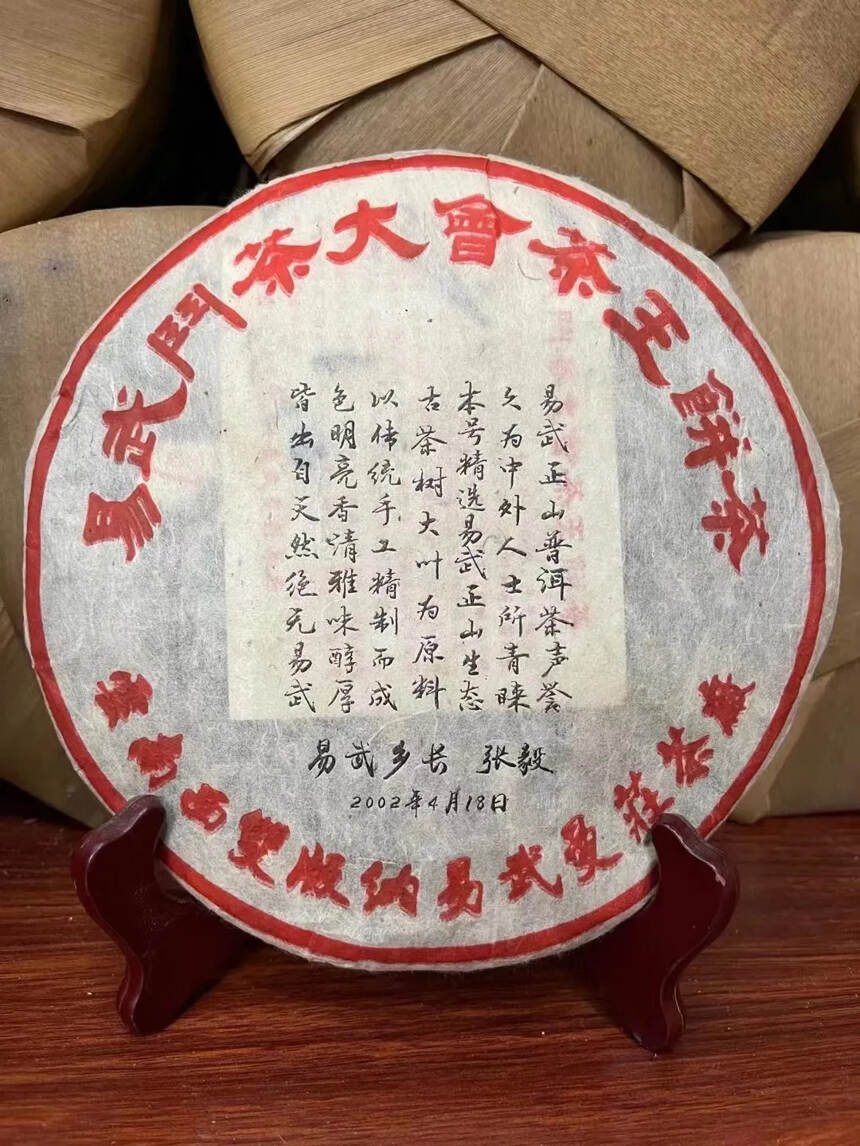 易武鬥茶大會茶王餅茶
易武正山普洱茶声誉
久为中外人士所青睐
本号精选易武正山生态
古茶树大叶为原料
以传统手工精制而成
色明亮香晴雅味醇厚
皆出自天然绝无易武
易武乡长 张毅
2002年4月18日
西雙版納易武曼